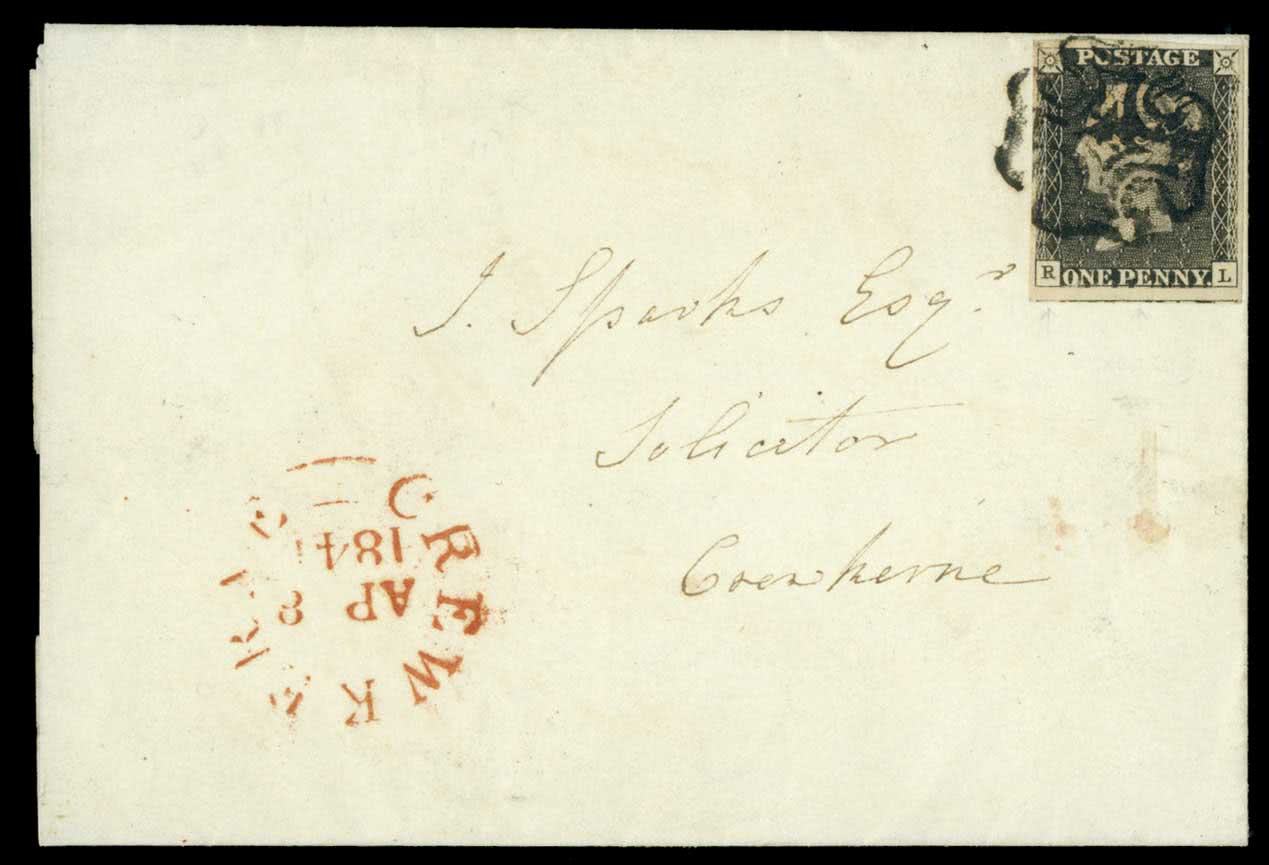 POSTAGE
R ONE PENNY. L
J. Sparks Esqr
Solicitor
Crewkerne
CREWKERNE
AP 8
184